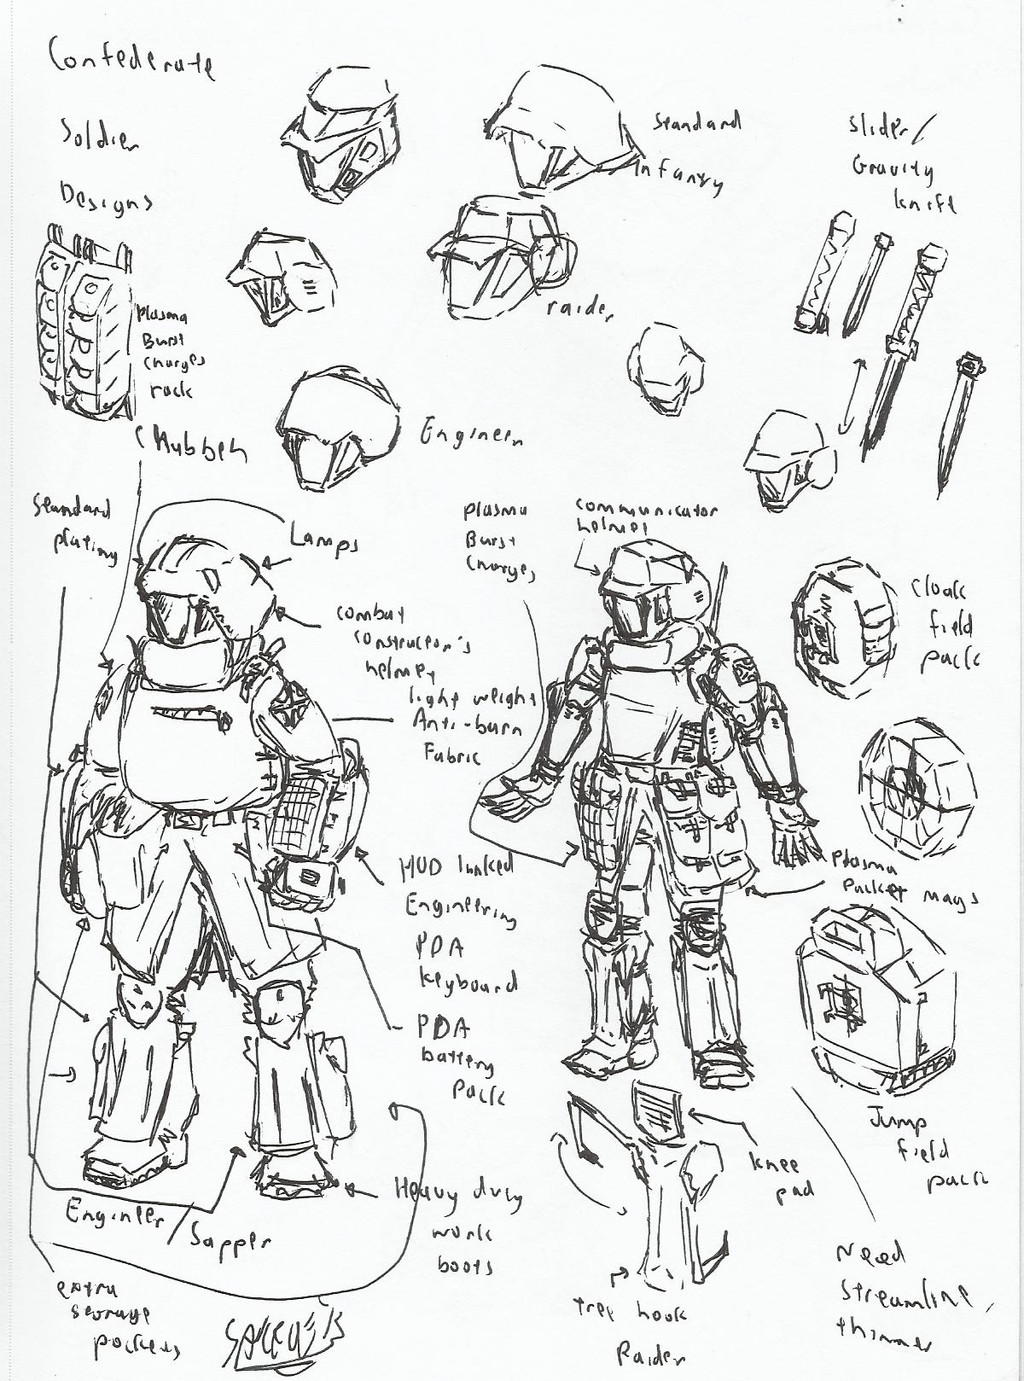 Confederate
Soldier
Designs
Standard
Infantry
Slider/
Gravity
knife
Plasma
Burst
Charges
rack
raider
Chubbeh
Engineer
Standard
plating
Lamps
plasma
Burst
Charges
communicator
helmet
combat
constructor's
helmet
light weight
Anti-burn
Fabric
Cloak
field
pack
HUD linked
Engineering
PDA
keyboard
PDA
battery
pack
Plasma
Packet mags
Jump
field
pack
knee
pad
Heavy duty
work
boots
Engineer/
Sapper
extra
storage
pockets
tree hook
Raider
Need
streamline,
thinner